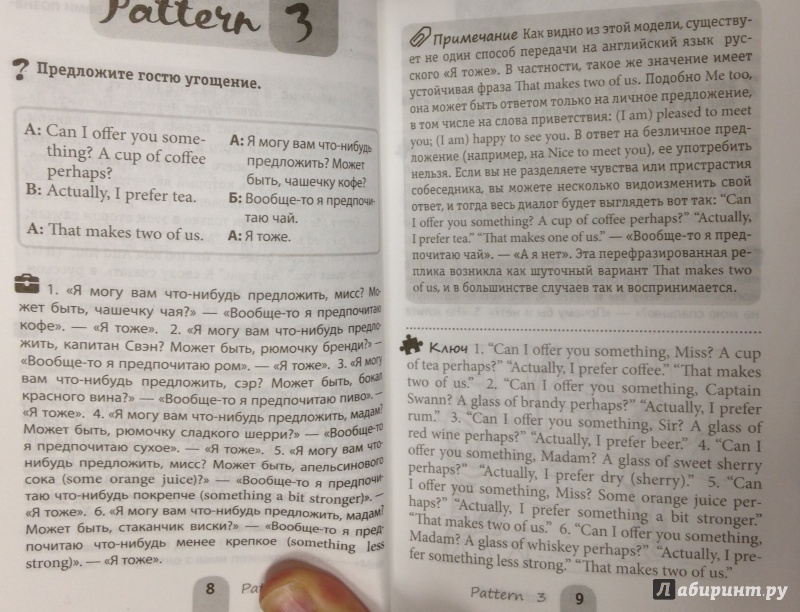 Pattern 3
Предложите гостю угощение.
A: Can I offer you some-
thing? A cup of coffee
perhaps?
B: Actually, I prefer tea.
A: That makes two of us.
А: Я могу вам что-нибудь
предложить? Может
быть, чашечку кофе?
Б: Вообще-то я предпочи-
таю чай.
А: Я тоже.
1. «Я могу вам что-нибудь предложить, мисс? Мо-
жет быть, чашечку чая?» — «Вообще-то я предпочитаю
кофе». — «Я тоже». 2. «Я могу вам что-нибудь предло-
жить, капитан Свэн? Может быть, рюмочку бренди?» —
«Вообще-то я предпочитаю ром». — «Я тоже». 3. «Я могу
вам что-нибудь предложить, сэр? Может быть, бокал
красного вина?» — «Вообще-то я предпочитаю пиво». —
«Я тоже». 4. «Я могу вам что-нибудь предложить, мадам?
Может быть, рюмочку сладкого шерри?» — «Вообще-то
я предпочитаю сухое». — «Я тоже». 5. «Я могу вам что-
нибудь предложить, мисс? Может быть, апельсинового
сока (some orange juice)?» — «Вообще-то я предпочи-
таю что-нибудь покрепче (something a bit stronger)». —
«Я тоже». 6. «Я могу вам что-нибудь предложить, мадам?
Может быть, стаканчик виски?» — «Вообще-то я пред-
почитаю что-нибудь менее крепкое (something less
strong)». — «Я тоже».
8 Pat
Примечание Как видно из этой модели, существу-
ет не один способ передачи на английский язык рус-
ского «Я тоже». В частности, такое же значение имеет
устойчивая фраза That makes two of us. Подобно Me too,
она может быть ответом только на личное предложение,
в том числе на слова приветствия: (I am) pleased to meet
you; (I am) happy to see you. В ответ на безличное пред-
ложение (например, на Nice to meet you), ее употребить
нельзя. Если вы не разделяете чувства или пристрастия
собеседника, вы можете несколько видоизменить свой
ответ, и тогда весь диалог будет выглядеть вот так: “Can
I offer you something? A cup of coffee perhaps?” “Actually,
I prefer tea.” “That makes one of us.” — «Вообще-то я пред-
почитаю чай». — «А я нет». Эта перефразированная ре-
плика возникла как шуточный вариант That makes two
of us, и в большинстве случаев так и воспринимается.
Ключ 1. “Can I offer you something, Miss? A cup
of tea perhaps?” “Actually, I prefer coffee.” “That makes
two of us.” 2. “Can I offer you something, Captain
Swann? A glass of brandy perhaps?” “Actually, I prefer
rum.” 3. “Can I offer you something, Sir? A glass of
red wine perhaps?” “Actually, I prefer beer.” 4. “Can I
offer you something, Madam? A glass of sweet sherry
perhaps?” “Actually, I prefer dry (sherry).” 5. “Can
I offer you something, Miss? Some orange juice per-
haps?” “Actually, I prefer something a bit stronger.”
“That makes two of us.” 6. “Can I offer you something,
Madam? A glass of whiskey perhaps?” “Actually, I pre-
fer something less strong.” “That makes two of us.”
Pattern 3 9
Лабиринт.ру